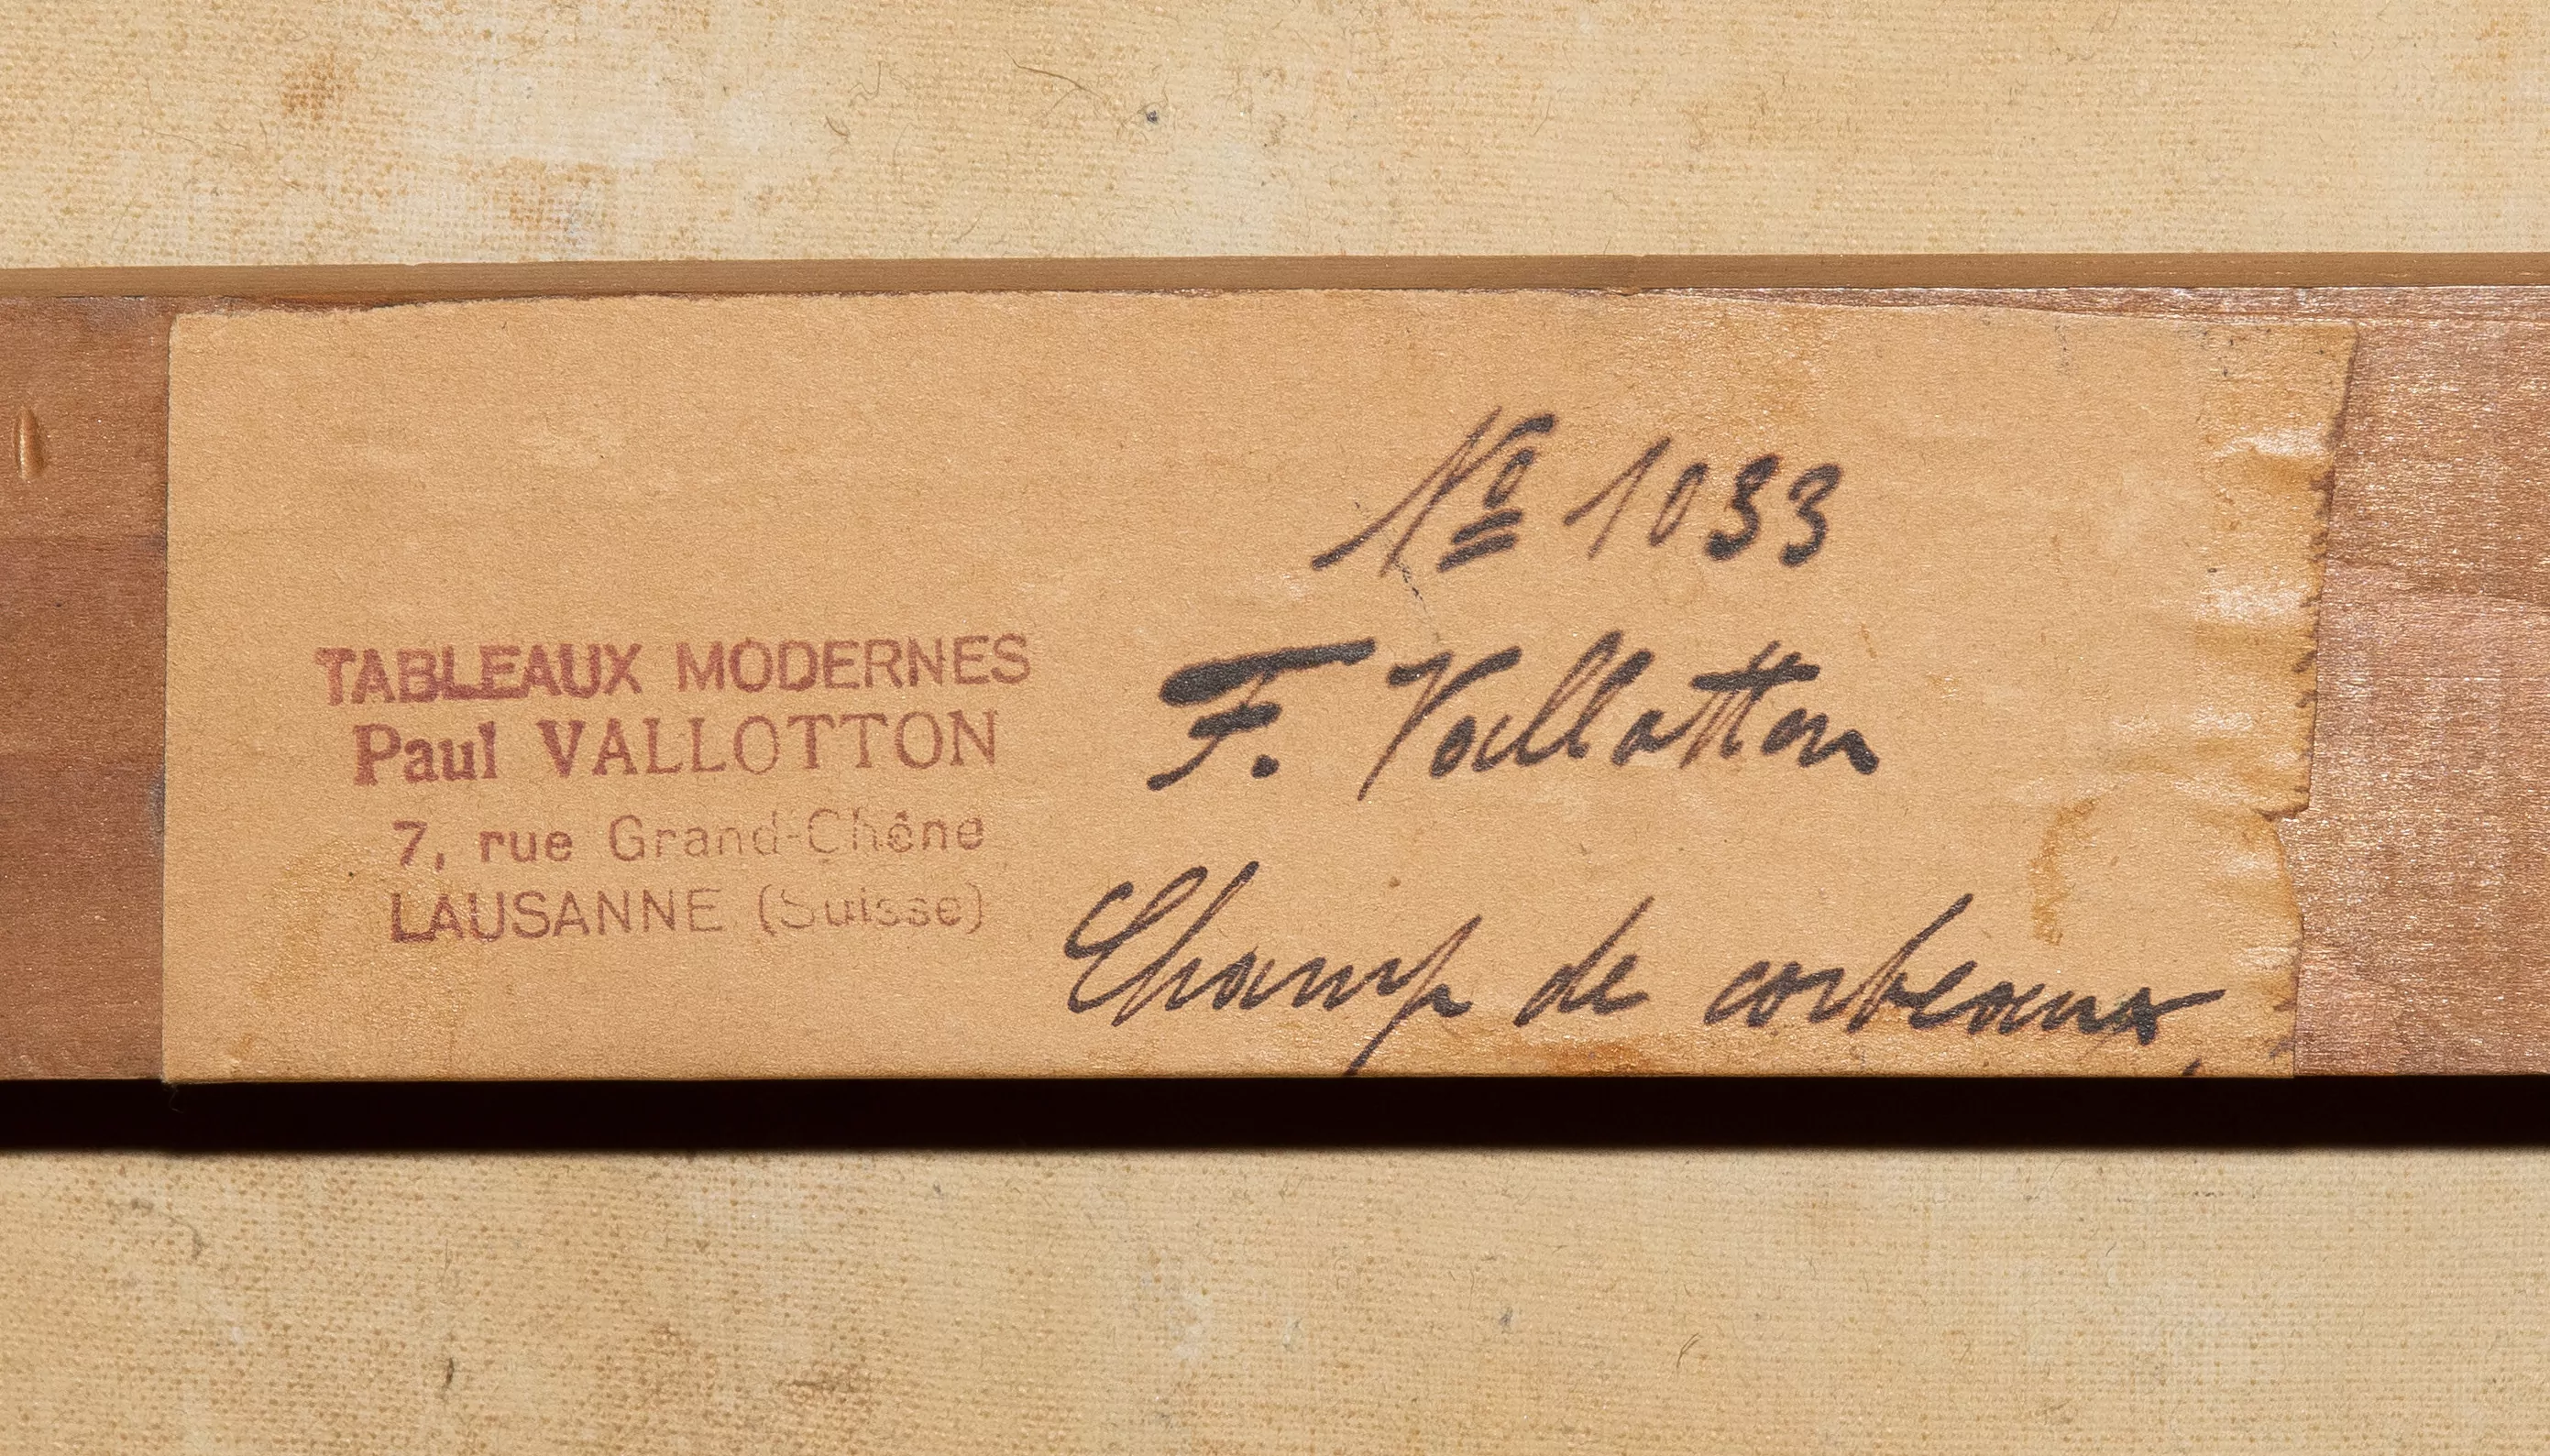 TABLEAUX MODERNES
Paul VALLOTTON
7, rue Grand-Chêne
LAUSANNE (Suisse)
Nº 1033
F. Vallotton
Champ de corbeaux,